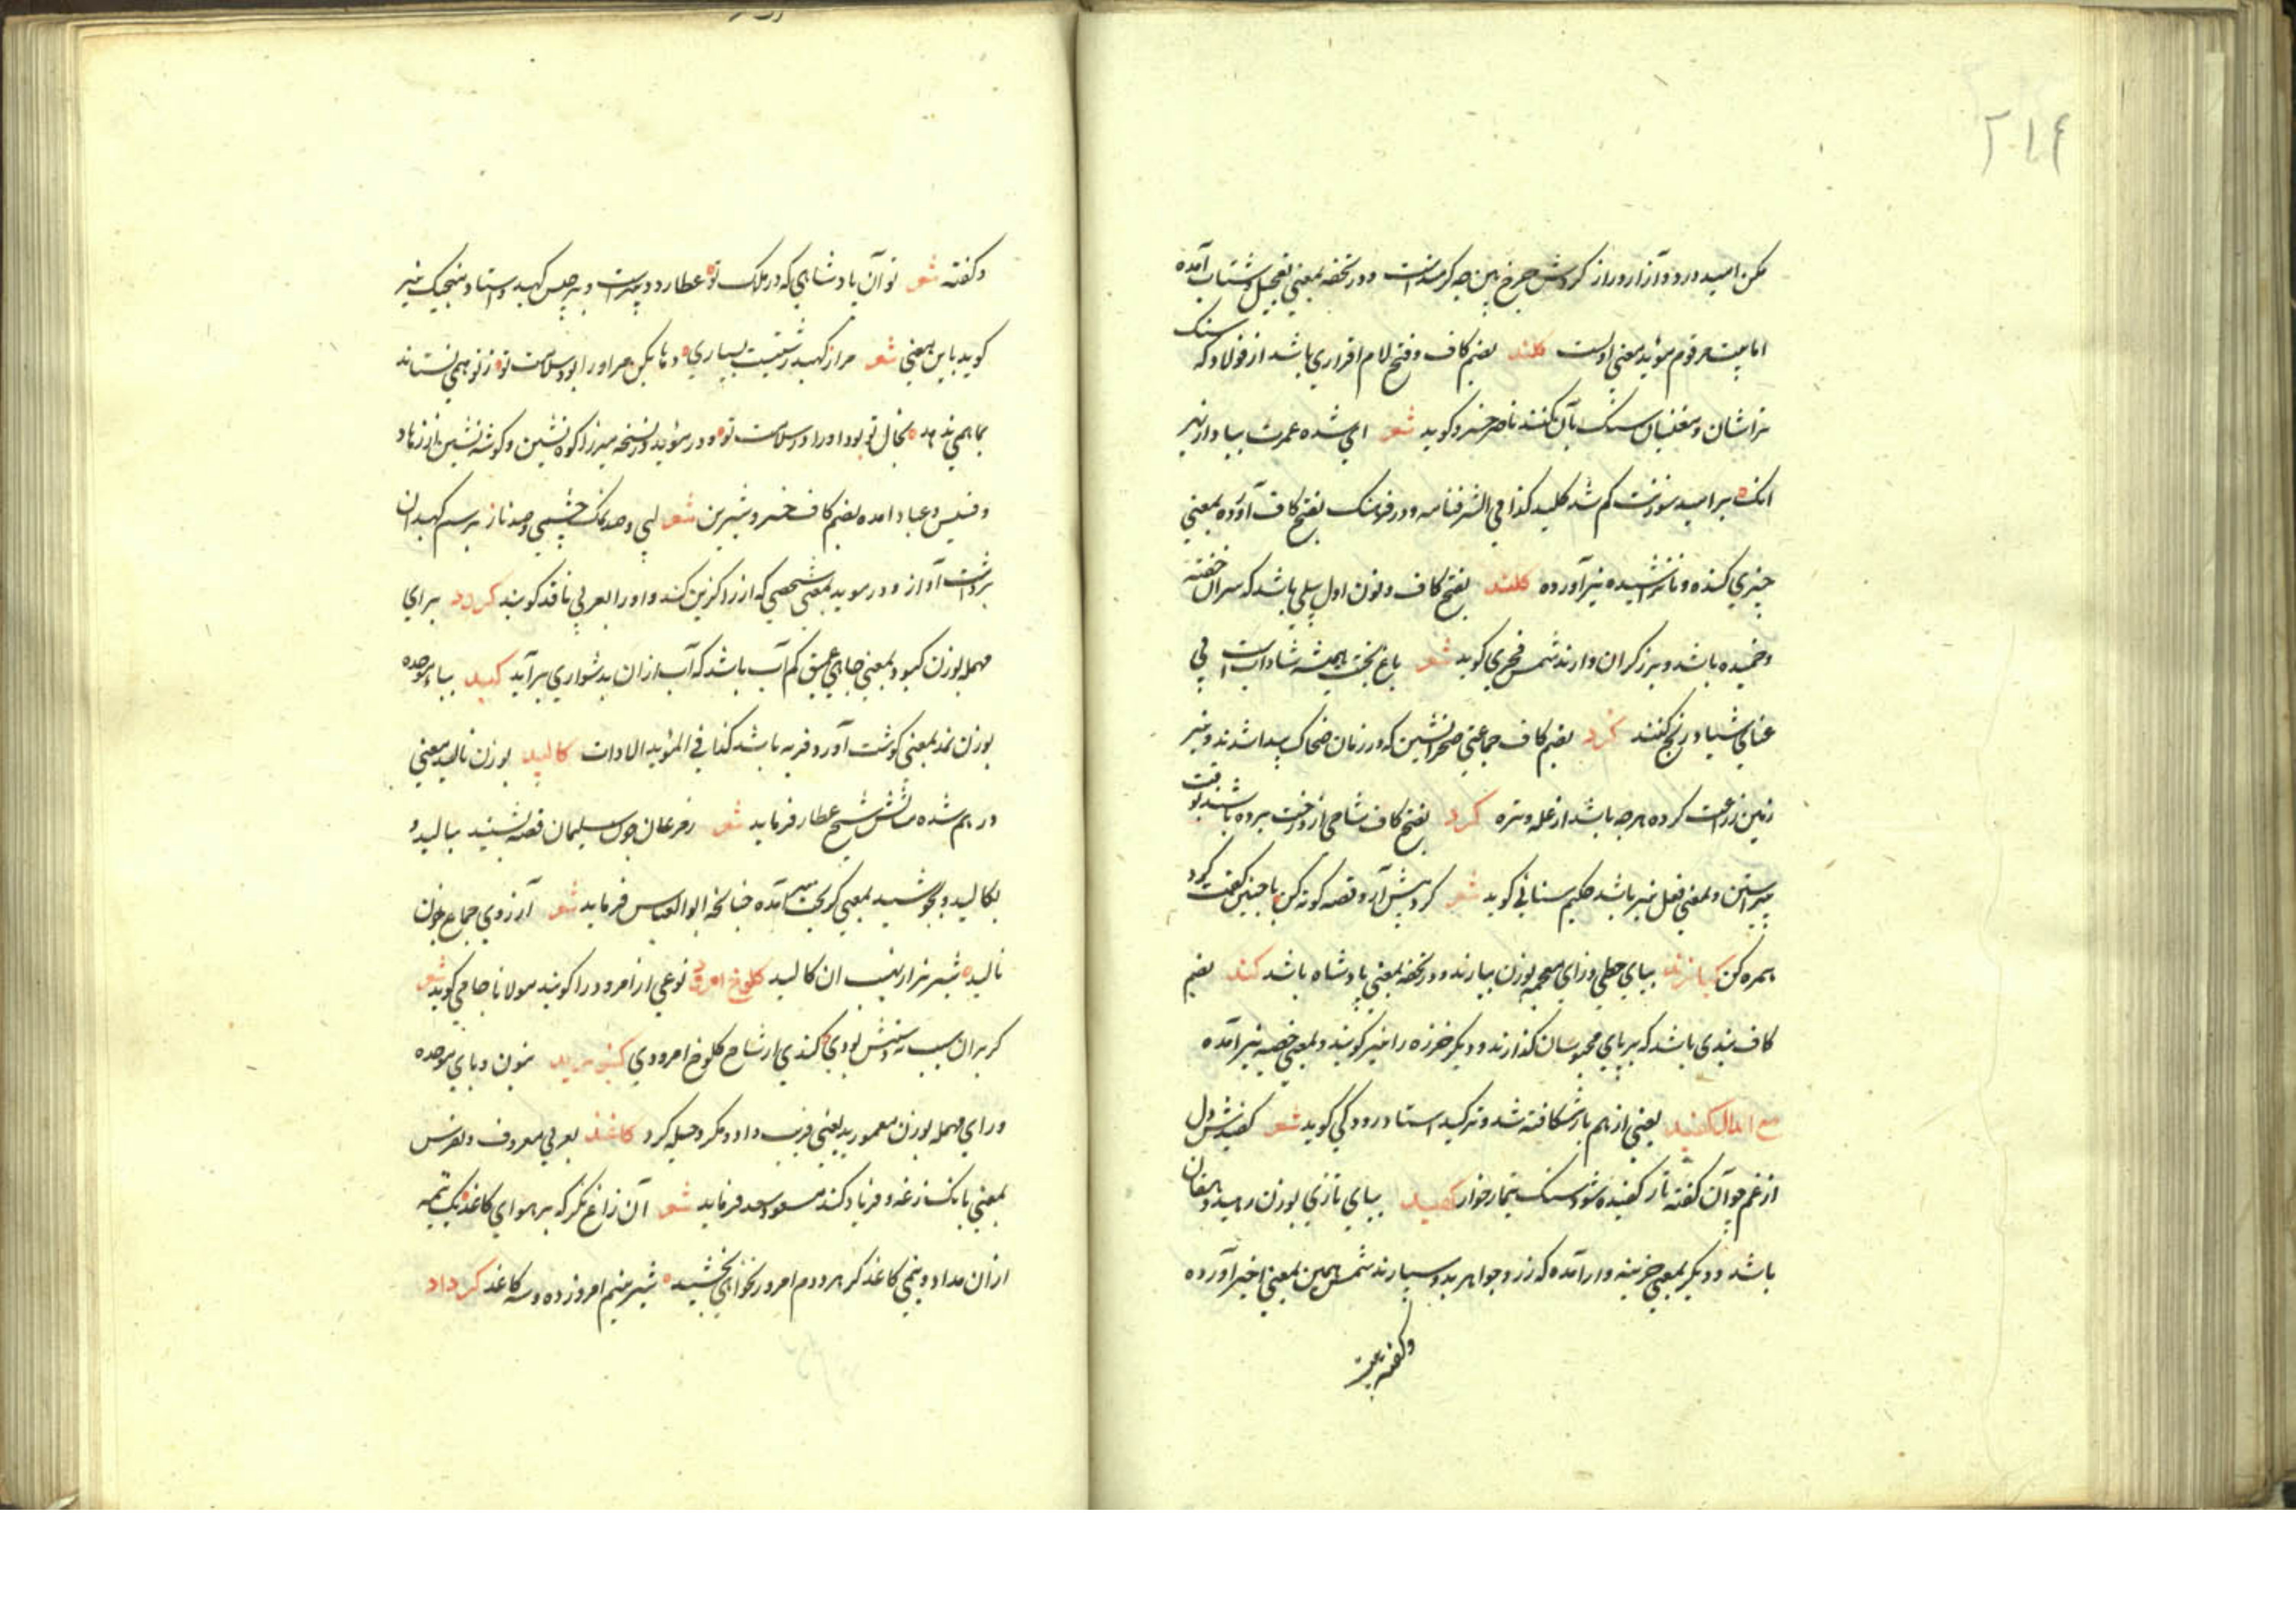 ۲۱۴
مکن امید درود و آزار و راز کردش چرخ ببین چه کرمندست و در تحفه بمعنی تعجیل و شتاب آمده
اما بیت مرقوم مؤید معنی اولست کلند بضم کاف و فتح لام افزاری باشد از فولاد که سنک
تراشان و مغنیان سنک بآن کنند ناصر خسرو کوید شعر ای شده عمرت بباد از بهر
آنک بر امید سوزنت کم شد کلید کذا فی الشرفنامه و در فرهنک بفتح کاف آورده بمعنی
چیزی کنده و ناتراشیده نیز آورده کلند بفتح کاف و نون اول بیلی باشد که سر آن خفته
و خمیده باشد و برزکران دارند شمس فخری کوید شعر باغ بختت همیشه شادابست بی
عنای شیار و رنج کلند کرد بضم کاف جماعتی صحرانشین که در زمان ضحاک پیدا شدند و نیز
زمین زراعت کرده هرچه باشد از غله و تره کرد بفتح کاف شاخی از درخت بریده باشند بوقت
پیراستن و بمعنی فعل نیز باشد حکیم سنائی کوید شعر کرد پیش آر و قصه کوته کن با چنین کفت کرد
همره کن کیازند ببای حطی و زای معجمه بوزن بیارند و در تحفه بمعنی پادشاه باشد کند بضم
کاف بندی باشد که بر پای محبوسان کذارند و دیکر خرزه را نیز کویند و بمعنی خصیه نیز آمده
مع الدال کفید یعنی از هم باز شکافته شد و ترکید استاد رودکی کوید شعر کفیدش دل
از غم چو آن کفته نار کفیده شود سنک تیمار خوار کهبد ببای تازی بوزن رمید دهقان
باشد و دیکر بمعنی خزینه دار آمده که زر و جواهر بدو سپارند شمس همین بمعنی اخیر آورده
و کفته بیت
و کفته شعر تو آن پادشاهی که در ملک تو عطارد دبیرست و برجیس کهبد و استاد منجیک نیز
کوید باین معنی شعر مرا ز کهبد زشتست بسیاری
بما همی ندهد بحال تو بود او را در سلامت تو و در مؤید و نسخه میرزا کوه نشین و کوشه نشین از زهاد
و قسیس و عباد آمده بضم کاف خسرو شیرین شعر لبی و صد نمک چشمی و صد ناز برسم کهبدان
برداشت آواز و در موید بمعنی شخصی که زر را کزین کند و او را بعربی ناقد کویند کردد برای
مهمله بوزن کبود بمعنی چاهی عمیق کم آب باشد که آب از آن بدشواری برآید کبد بباء موحده
بوزن نمد بمعنی کوشت آور و فربه باشد کذا فی المؤید الادات کالید بوزن نالید معنی
درهم شده مثالش شیخ عطار فرماید شعر زمرغان چون سلیمان قصه بشنید بنالید و
بکالید و بجوشید بمعنی کریخت آمده چنانچه ابوالعباس فرماید شعر آرزوی جماع چون
نالیده شیر نر ار نیب آن کالید کلوخ امرود نوعی از امرود را کویند مولانا جامی کوید شعر
کر بر آن سیب دسترس بودی کندی از شاخ کلوخ امرودی کنبرید بنون و بای موحده
و رای مهمله بوزن معمورید یعنی فریب داد و مکر و حیله کرد کاغذ بعربی معروف و بفرس
بمعنی بانک زغد و فریاد کند مسعود سعد فرماید شعر آن زاغ نکر که بر هوای کاغذ یک نیمه
از آن مداد و نیمی کاغذ کر هر دو دم امروز نخواهی بخشید شیر منیم امروز ده دسته کاغذ کرداد